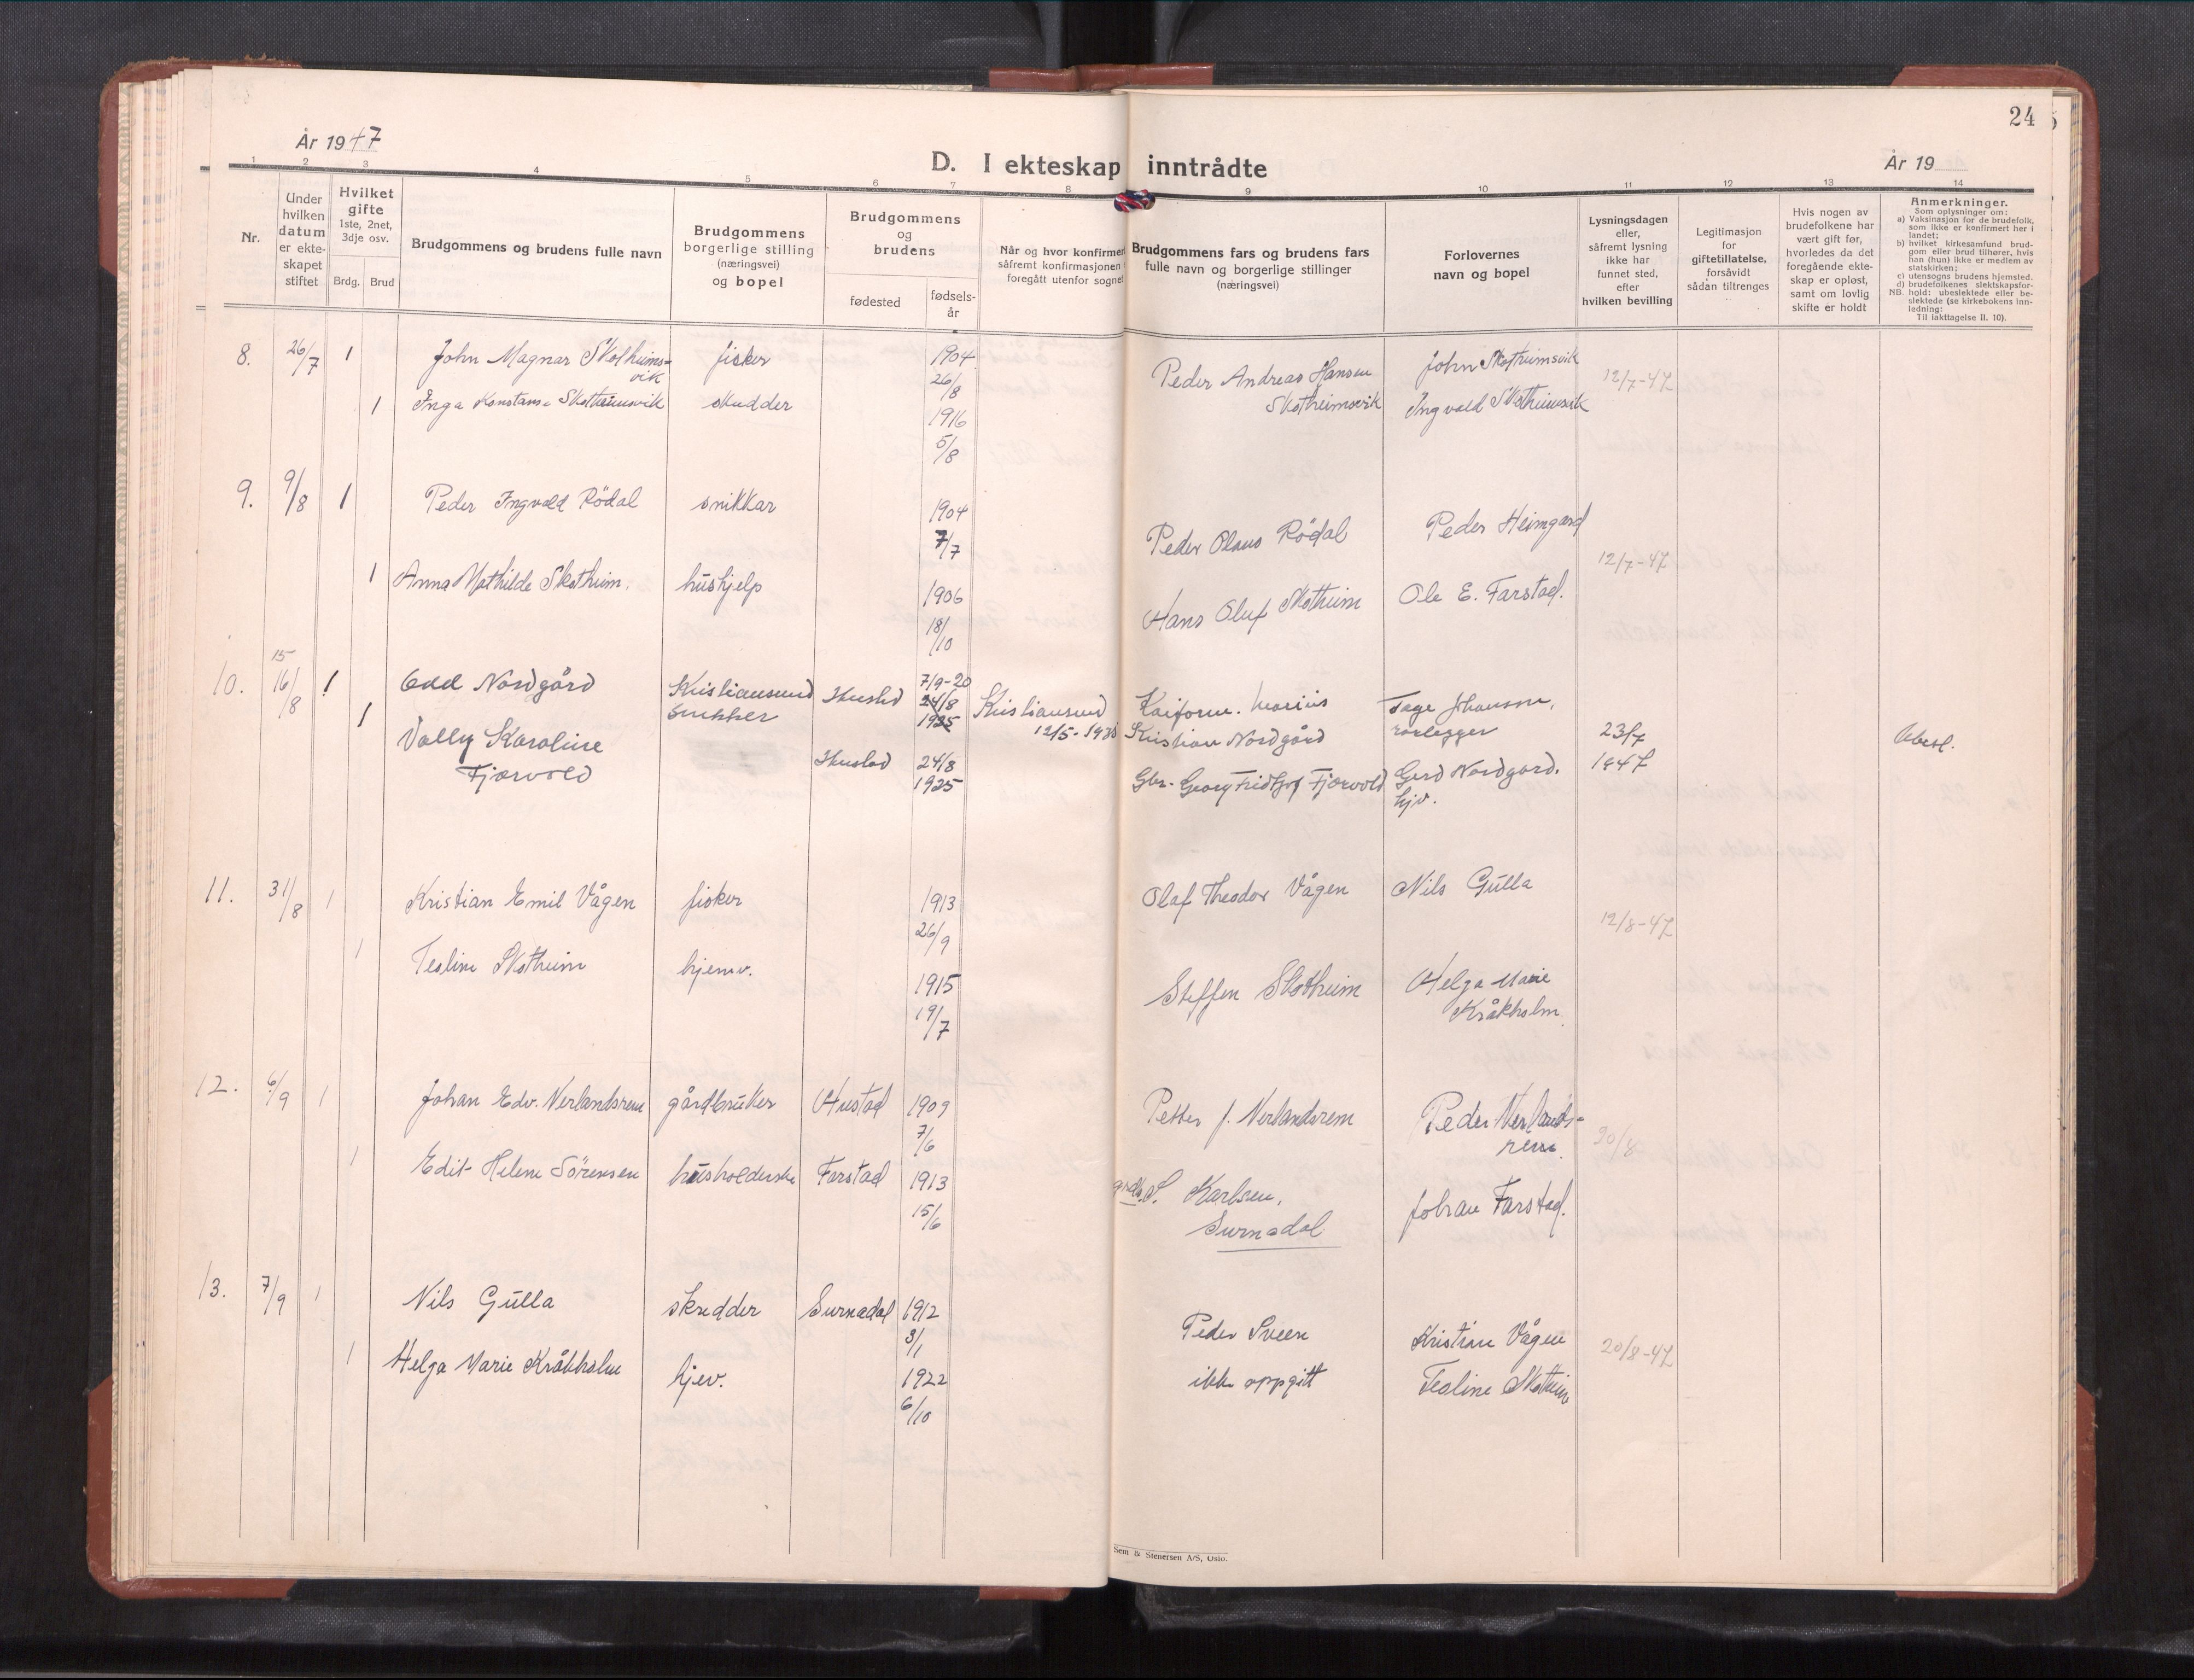 24
År 1947
D. I ekteskap inntrådte
År 19
1 2 3 4 5 6 7 8 9 10 11 12 13 14
Nr.
Under hvilken datum er ekteskapet stiftet
Hvilket gifte
1ste, 2net, 3dje osv.
Brdg. Brud
Brudgommens og brudens fulle navn
Brudgommens borgerlige stilling (næringsvei) og bopel
Brudgommens og brudens
fødested
fødsels-
år
Når og hvor konfirmer
såfremt konfirmasjonen
foregått utenfor sognet
Brudgommens fars og brudens fars
fulle navn og borgerlige stillinger
(næringsvei)
Forlovernes
navn og bopel
Lysningsdagen
eller,
såfremt lysning
ikke har
funnet sted,
efter
hvilken bevilling
Legitimasjon
for
giftetillatelse,
forsåvidt
sådan tiltrenges
Hvis nogen av
brudefolkene har
vært gift før,
hvorledes da det
foregående ekte-
skap er opløst,
samt om lovlig
skifte er holdt
Anmerkninger.
Som oplysninger om:
a) Vaksinasjon for de brudefolk,
som ikke er konfirmert her i
landet;
b) hvilket kirkesamfund brud-
gom eller brud tilhører, hvis
han (hun) ikke er medlem av
statskirken;
c) utensogns brudens hjemsted.
d) brudefolkenes slektskapsfor-
hold: ubeslektede eller be-
slektede (se kirkebokens inn-
ledning:
NB. Til iakttagelse II. 10).
8. 26/7 1 John Magnar Skotheims-
vik fisker 1904
26/8 Peder Andreas Hansen
Skotheimsvik John Skotheimsvik 12/7-47
1 Inga Konstanse Skotheimsvik skredder 1916
5/8 Ingvald Skotheimsvik
9. 9/8 1 Peder Ingvald Rödal snikkar 1904
7/7 Peder Olaus Rödal Peder Heimgard 12/7-47
1 Anna Mathilde Skotheim. hushjelp 1906
18/10 Hans Oluf Skotheim Ole E. Farstad.
10. 15
16/8 1 Odd Nordgård Kristiansund
snekker Hustad 7/9-20
24/8
1925 Kristiansund
12/5-193 Kaiform. Marius
Kristian Nordgård Tage Johansen,
rørlegger 23/7
1947 Ubesl.
1 Vally Karoline
Fjærvold Hustad 24/8
1925 Gbr. Georg Fridtjof Fjærvold Gerd Nordgård.
hjv.
11. 31/8 1 Kristian Emil Vågen fisker 1913
26/9 Olaf Theodor Vågen Nils Gulla 12/8-47
1 Tealine Skotheim hjemv. 1915
19/7 Steffen Skotheim Helga Marie
Kråkholm.
12. 6/9 1 Johan Edv. Nerlandsrem gårdbruker Hustad 1909
7/6 Petter J. Nerlandsrem Peder Nerlands-
rem. 20/8
1 Edit Helene Sörensen husholderske Farstad 1913
15/6 grdb. S. Karlsen,
Surnadal Johan Farstad.
13. 7/9 1 Nils Gulla skredder Surnadal 1912
3/1 Peder Sveen Kristian Vågen 20/8-47
1 Helga Marie Kråkholm hjev. 1922
6/10 ikke oppgitt Tealine Skotheim
Sem & Stenersen A/S, Oslo.